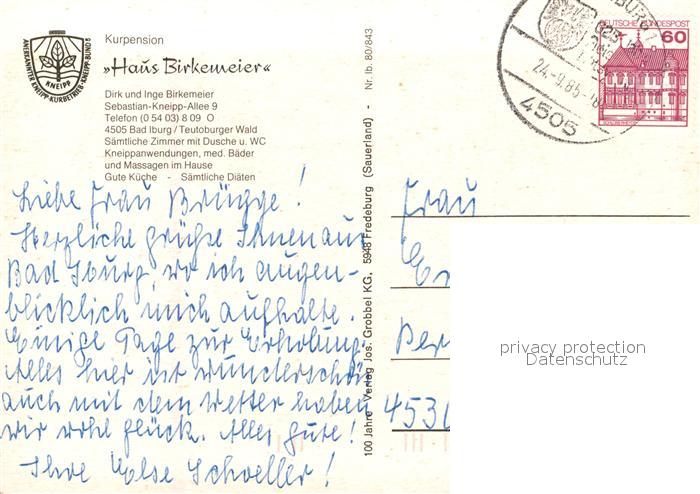 ANERKANNTER KNEIPP-KURBETRIEB · KNEIPP-BUND
KNEIPP
Kurpension
»Haus Birkemeier«
Dirk und Inge Birkemeier
Sebastian-Kneipp-Allee 9
Telefon (0 54 03) 8 09 O
4505 Bad Iburg / Teutoburger Wald
Sämtliche Zimmer mit Dusche u. WC
Kneippanwendungen, med. Bäder
und Massagen im Hause
Gute Küche - Sämtliche Diäten
Liebe Frau Brügge!
Herzliche Grüße Ihnen aus
Bad Iburg, wo ich augen-
blicklich mich aufhalte.
Einige Tage zur Erholung.
Alles hier ist wunderschön
auch mit dem Wetter haben
wir wohl glück. Alles Gute!
Ihre Else Schoeller!
100 Jahre Verlag Jos. Grobbel KG, 5948 Fredeburg (Sauerland) - Nr. Ib. 80/843
DEUTSCHE BUNDESPOST
60
24.-9.85.-16
4505
Frau
Ber
4531
privacy protection
Datenschutz